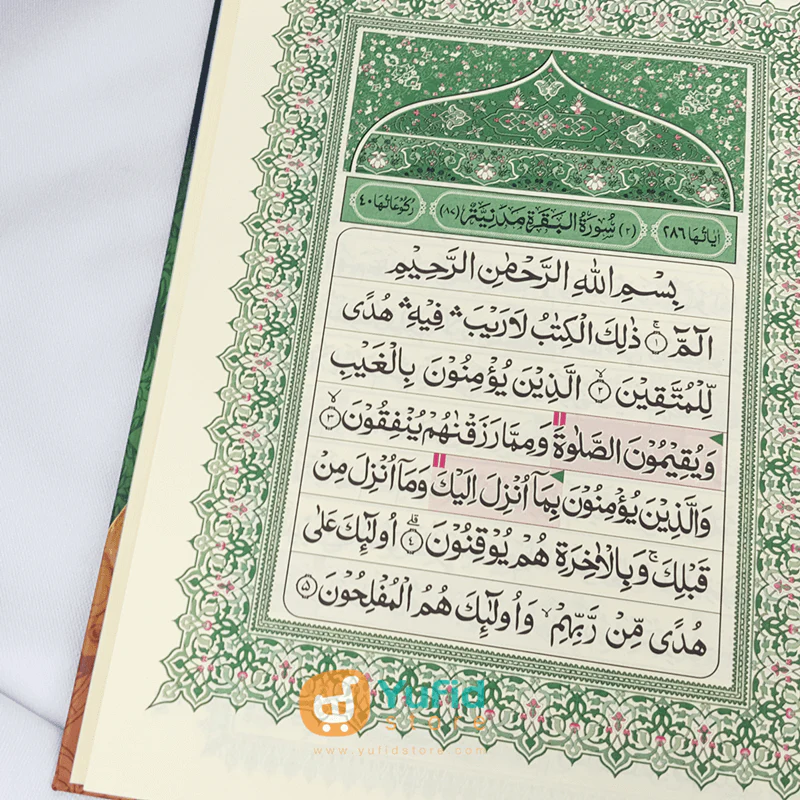 اٰيَاتُهَا ٢٨٦ (٢) سُوْرَةُ الْبَقَرَةِ مَدَنِيَّةٌ (٨٧) رُكُوْعَاتُهَا ٤٠
بِسْمِ اللّٰهِ الرَّحْمٰنِ الرَّحِيْمِ
الۤمّۤ ۚ ﴿١﴾ ذٰلِكَ الْكِتٰبُ لَا رَيْبَ ۛ فِيْهِ ۛ هُدًى
لِّلْمُتَّقِيْنَ ۙ ﴿٢﴾ الَّذِيْنَ يُؤْمِنُوْنَ بِالْغَيْبِ
وَيُقِيْمُوْنَ الصَّلٰوةَ وَمِمَّا رَزَقْنٰهُمْ يُنْفِقُوْنَ ۙ ﴿٣﴾
وَالَّذِيْنَ يُؤْمِنُوْنَ بِمَآ اُنْزِلَ اِلَيْكَ وَمَآ اُنْزِلَ مِنْ
قَبْلِكَ ۚ وَبِالْاٰخِرَةِ هُمْ يُوْقِنُوْنَ ۗ ﴿٤﴾ اُولٰۤئِكَ عَلٰى
هُدًى مِّنْ رَّبِّهِمْ ۙ وَاُولٰۤئِكَ هُمُ الْمُفْلِحُوْنَ ﴿٥﴾
Yufid
store
www.yufidstore.com